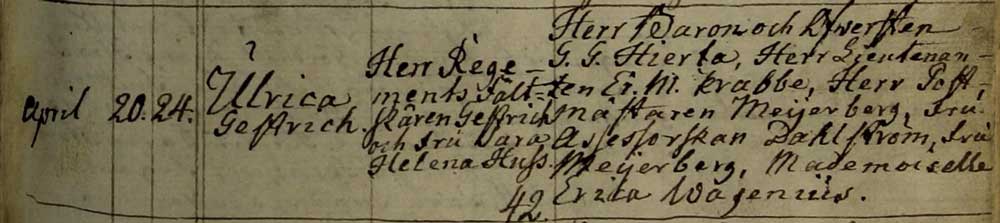 April 20. 24.
Ulrica
Geffrich.
Herr Rege-
ments Fält-
skären Geffrich
och Fru Sara
Helena Huss.
42.
Herr Baron och Öfwersten
G. G. Hierta, Herr Lieutenan-
ten Er. M. Krabbe, Herr Post-
mästaren Meijerberg, Fru
Assessorskan Dahlström, Fru
Meijerberg, Mademoiselle
Erica Wagenius.